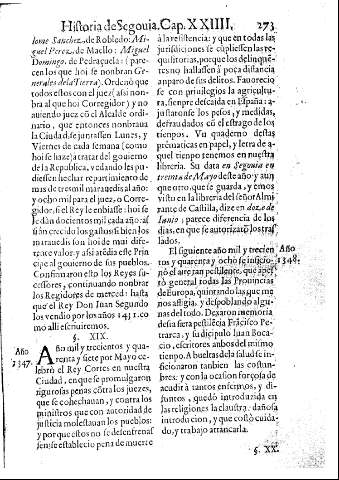 Historia de Segouia. Cap. XXIIII, 273
lome Sanchez, de Robledo: Mi-
guel Perez, de Maello: Miguel
Domingo, de Pedraçuela: (pare-
cen los que hoi se nonbran Ge-
nerales de la Tierra). Ordenò que
todos estos con el juez (assi non-
bra al que hoi Corregidor) y no
auiendo juez cõ el Alcalde ordi-
nario, que entonces nonbraua
la Ciudad, se juntassen Lunes, y
Viernes de cada semana (como
hoi se haze) a tratar del gouierno
de la Republica, vedando les pu-
diessen hechar repartimiento de
mas de tres mil marauedis al año:
y ocho mil para el juez, o Corre-
gidor, si el Rey le enbiasse: hoi se
le dan docientos mil cada año: ai
si ún crecido los gastos si bien los
marauedis son hoi de mui dife-
rente valor: y assi atẽdia este Prin-
cipe al gouierno de sus pueblos.
Confirmaron esto los Reyes su-
cessores, continuando nonbrar
los Regidores de merced: hasta
que el Rey Don Iuan Segundo
los vendio por los años 1431. co-
mo alli escriuiremos.
§. XIX.
Año
1347.
Año mil y trecientos y qua-
renta y siete por Mayo cele-
brò el Rey Cortes en nuestra
Ciudad, en que se promulgaron
rigurosas penas cõtra los juezes,
que se cohechauan, y contra los
ministros que con autoridad de
justicia molestauan los pueblos:
y porque estos no se defenfrenas-
sen se establecio pena de muerte
à la resistencia: y que en todas las
jurisdiciones se cũpliessen las re-
quisitorias, porque los delinquẽ-
tes no hallassẽ à poca distancia
anparo de sus delitos. Fauorecio
se con priuilegios la agricultura,
sienpre descaida en España: a-
justaronse los pesos, y medidas,
defraudados cõ el estrago de los
tienpos. Vn quaderno destas
prematicas en papel, y letra de a-
quel tienpo tenemos en nuestra
libreria. Su data en Segouia en
treinta de Mayo deste año: y aun
que otro, que se guarda, y emos
visto en la libreria del señor Almi
rante de Castilla, dize en doze de
Iunio; parece diferencia de los
dias, en que se autorizarõ los tras
lados.
El siguiente año mil y trecien
tos y quarenta y ocho se inficio-
nò el aire tan pestilente, que apes
tò general todas las Prouincias
de Europa, quintando las que me
nos afligia, y despoblando algu-
nas del todo. Dexaron memoria
desta fiera pestilẽcia Frãcisco Pe-
trarca, y su dicipulo Iuan Boca-
cio, escritores anbos del mismo
tienpo. A bueltas de la salud se in-
ficionaron tanbien las costun-
bres: y con la ocasion forçosa de
acudir à tantos enfermos, y di-
funtos, quedò introduzida en
las religiones la claustra. dañosa
introducion, y que costò cuida-
do, y trabajo arrancarla.
Año
1348.
§. XX.